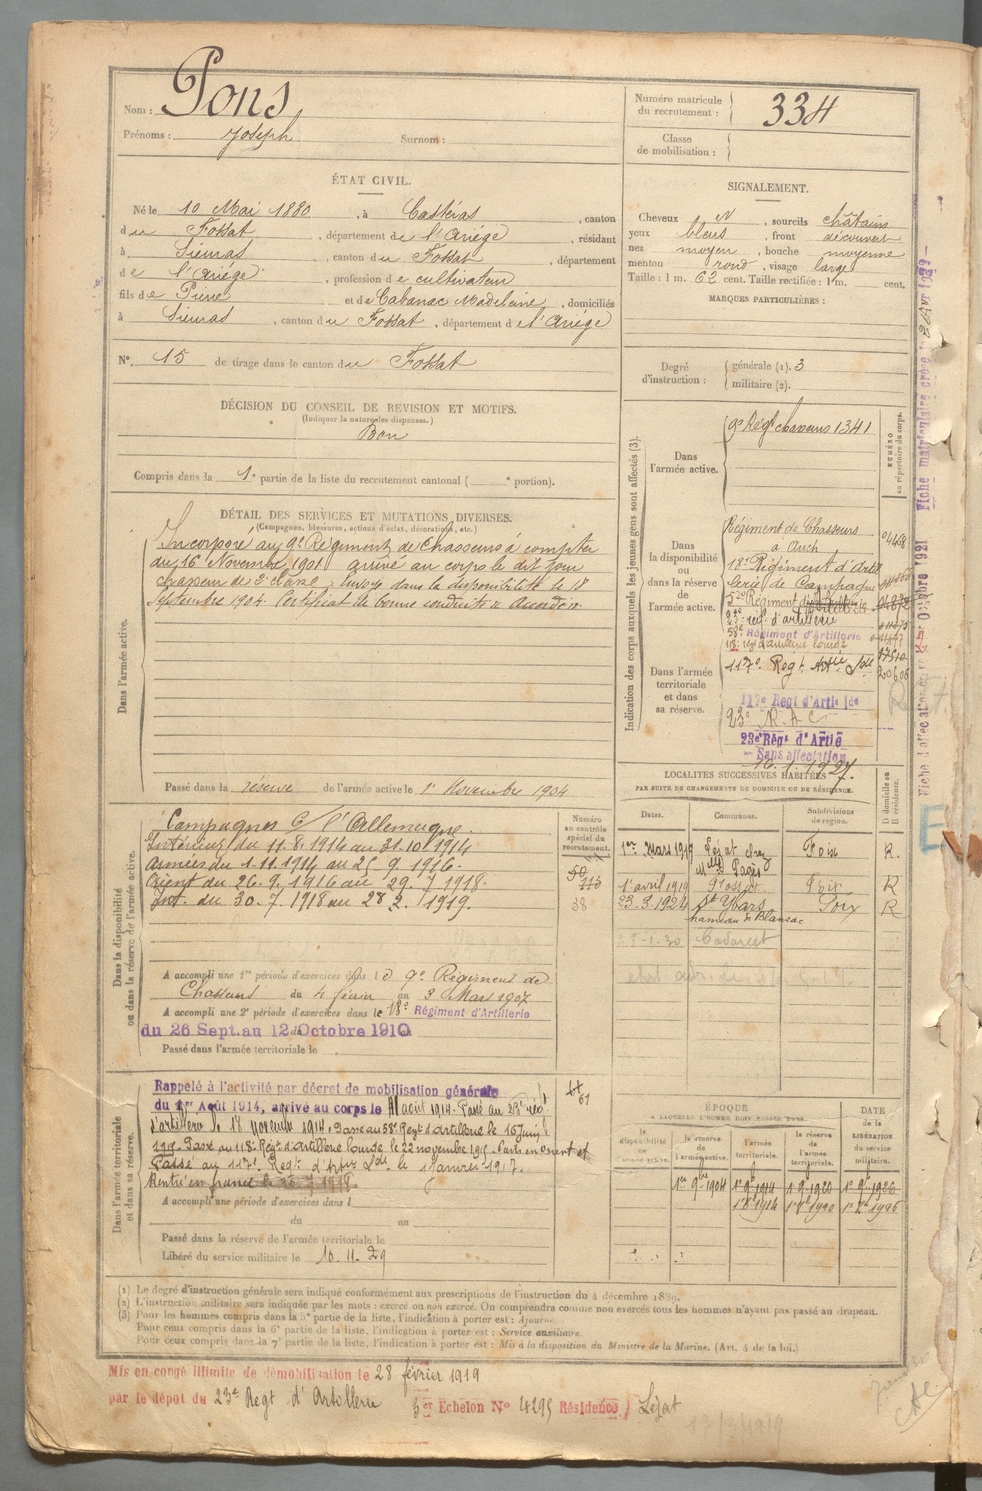 Nom : Pons
Prénoms : Joseph Surnom :
Numéro matricule du recrutement : 334
Classe de mobilisation :
ÉTAT CIVIL.
Né le 10 Mai 1880, à Castéras, canton
du Fossat, département de l'Ariège, résidant
à Sieuras, canton du Fossat, département
de l'Ariège, profession de cultivateur
fils de Pierre et de Cabanac Madeleine, domiciliés
à Sieuras, canton du Fossat, département de l'Ariège
N° 15 de tirage dans le canton du Fossat
SIGNALEMENT.
Cheveux N, sourcils châtains
yeux bleus, front découvert
nez moyen, bouche moyenne
menton rond, visage large
Taille : 1 m. 62 cent. Taille rectifiée : 1 m. cent.
MARQUES PARTICULIÈRES :
Degré d'instruction : générale (1). 3
militaire (2).
DÉCISION DU CONSEIL DE REVISION ET MOTIFS.
(Indiquer la nature des dispenses.)
Bon
Compris dans la 1e partie de la liste du recrutement cantonal ( e portion).
DÉTAIL DES SERVICES ET MUTATIONS DIVERSES.
(Campagnes, blessures, actions d'éclat, décorations, etc.)
Dans l'armée active.
Incorporé au 9e Régiment de Chasseurs à compter
du 16 Novembre 1901 arrivé au corps le dit jour
chasseur de 2e classe, envoyé dans la disponibilité le 18
Septembre 1904 Certificat de bonne conduite "Accordé".
Passé dans la réserve de l'armée active le 1er Novembre 1904
Indication des corps auxquels les jeunes gens sont affectés (3).
NUMÉRO au répertoire du corps.
Dans l'armée active.
9e Régt chasseurs 1341
Dans la disponibilité ou dans la réserve de l'armée active.
Régiment de Chasseurs
à Auch
18e Régiment d'Artil
lerie de Campagne
23e rég. d'artillerie
58e Régiment d'Artillerie
118e rég d'artillerie lourde
Dans l'armée territoriale et dans sa réserve.
117e Regt Artie Lde 20606
117e Regt d'Artie lde
23e R.A.C
23e Régt d'Artie
Sans affectation
16.1.1927.
LOCALITÉS SUCCESSIVES HABITÉES
PAR SUITE DE CHANGEMENTS DE DOMICILE OU DE RÉSIDENCE.
Dates. Communes. Subdivisions de région. D domicile ou R résidence.
1er mars 1919 Lézat chez Foix R.
1er avril 1919 Fossat Foix R
23.3.1924 St Ybars Foix R
hameau de Blansac
Dans la disponibilité ou dans la réserve de l'armée active.
Numéro au contrôle spécial du recrutement.
Campagnes C/ l'Allemagne.
Intérieur du 11.8.1914 au 31.10.1914
Armées du 1.11.1914 au 25.9.1916.
Orient du 26.9.1916 au 29.7.1918.
Int. du 30.7.1918 au 28.2.1919.
38
A accompli une 1re période d'exercices dans le 9e Régiment de
Chasseurs du 4 février au 3 Mars 1907
A accompli une 2e période d'exercices dans le 18e Régiment d'Artillerie
du 26 Sept. au 12 Octobre 1910
Passé dans l'armée territoriale le
Dans l'armée territoriale et dans sa réserve.
Rappelé à l'activité par décret de mobilisation générale
du 1er Août 1914, arrivé au corps le 11 août 1914. Passé au 23e rég
d'artillerie le 18 novembre 1914. Passé au 58e Regt d'artillerie le 16 Juin
1915. Passé au 118e Regt d'Artillerie lourde le 22 novembre 1915. Parti en Orient et
Passé au 117e Regt d'Artie Lde le 1 janvier 1917.
Rentré en france le 30.7.1918.
A accompli une période d'exercices dans l
du au
Passé dans la réserve de l'armée territoriale le
Libéré du service militaire le 10.11.29
ÉPOQUE
À LAQUELLE L'HOMME DOIT PASSER DANS
la disponibilité de l'armée active. la réserve de l'armée active. l'armée territoriale. la réserve de l'armée territoriale. DATE de la LIBÉRATION du service militaire.
1er 9bre 1904 1er 9bre 1914 1er 9bre 1920 1er 9bre 1926
(1) Le degré d'instruction générale sera indiqué conformément aux prescriptions de l'instruction du 4 décembre 1889.
(2) L'instruction militaire sera indiquée par les mots : exercé ou non exercé. On comprendra comme non exercés tous les hommes n'ayant pas passé au drapeau.
(3) Pour les hommes compris dans la 5e partie de la liste, l'indication à porter est : Ajourné.
Pour ceux compris dans la 6e partie de la liste, l'indication à porter est : Service auxiliaire.
Pour ceux compris dans la 7e partie de la liste, l'indication à porter est : Mis à la disposition du Ministre de la Marine. (Art. 4 de la loi.)
Mis en congé illimité de démobilisation le 28 février 1919
par le dépôt du 23e Regt d'Artillerie 3er Echelon N° 4295 Résidence) Lézat